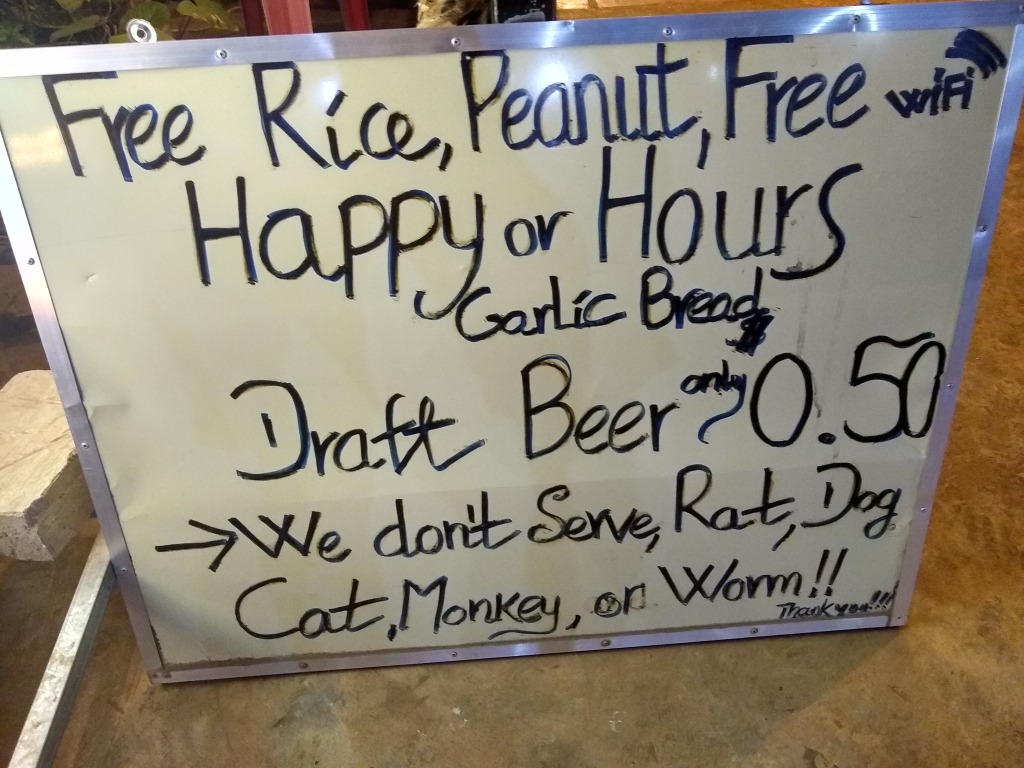 Free Rice, Peanut, Free WiFi
Happy or Hours
Garlic Bread
Draft Beer only $0.50
→ We don't Serve, Rat, Dog
Cat, Monkey, or Worm!!
Thank you!!!